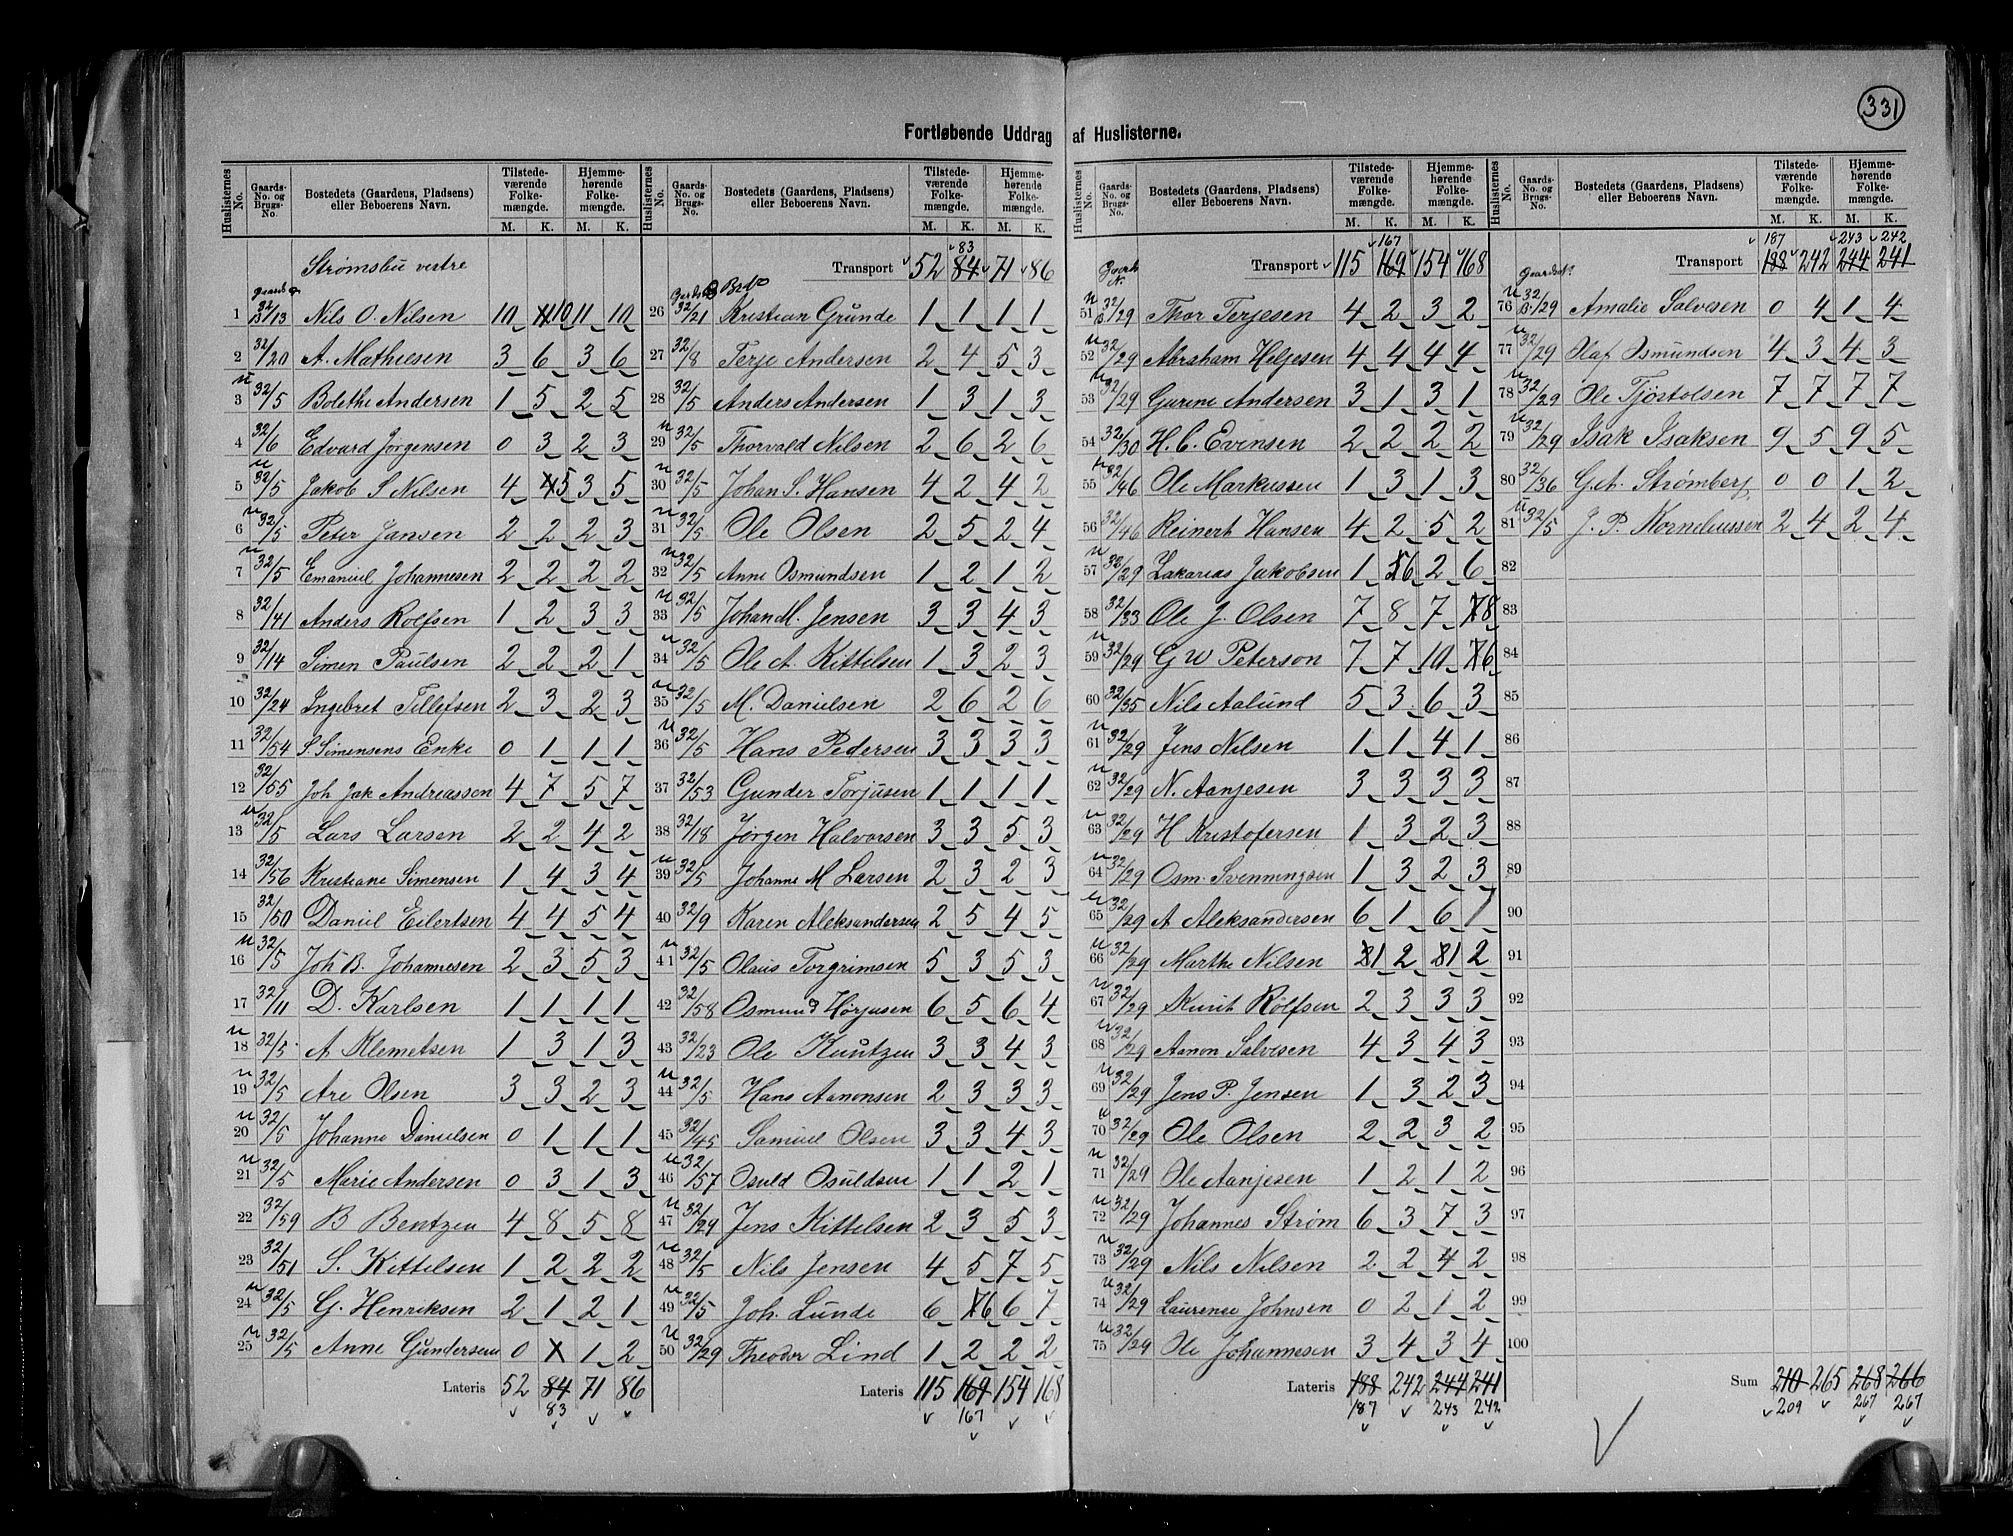 331
Fortløbende Uddrag af Huslisterne.
Huslisternes No. Gaards-No. og Brugs-No. Bostedets (Gaardens, Pladsens) eller Beboerens Navn. Tilstedeværende Folkemængde. M. K. Hjemmehørende Folkemængde. M. K.
Strømsbu vestre
1 32/13 Nils O. Nilsen 10 10 11 10
2 32/20 A. Mathiesen 3 6 3 6
3 32/5 Bolethe Andersen 1 5 2 5
4 32/6 Edvard Jørgensen 0 3 2 3
5 32/5 Jakob S Nilsen 4 5 3 5
6 32/5 Peter Jansen 2 2 2 3
7 32/5 Emanuel Johannesen 2 2 2 2
8 32/41 Anders Rolfsen 1 2 3 3
9 32/14 Simen Paulsen 2 2 2 1
10 32/24 Ingebret Tellefsen 2 3 2 3
11 32/54 S. Simensens Enke 0 1 1 1
12 32/55 Joh Jak Andreassen 4 7 5 7
13 32/5 Lars Larsen 2 2 4 2
14 32/56 Kristiane Simensen 1 4 3 4
15 32/50 Daniel Eilertsen 4 4 5 4
16 32/5 Joh B. Johannesen 2 3 5 3
17 32/11 D. Karlsen 1 1 1 1
18 32/5 A Klemetsen 1 3 1 3
19 32/5 Are Olsen 3 3 2 3
20 32/5 Johanne Danielsen 0 1 1 1
21 32/5 Marie Andersen 0 3 1 3
22 32/59 B Bentzen 4 8 5 8
23 32/51 S. Kittelsen 1 2 2 2
24 32/5 G. Henriksen 2 1 2 1
25 32/5 Anne Gundersen 0 1 2
Lateris 52 84 71 86
83
Huslisternes No. Gaards-No. og Brugs-No. Bostedets (Gaardens, Pladsens) eller Beboerens Navn. Tilstedeværende Folkemængde. M. K. Hjemmehørende Folkemængde. M. K.
83
Transport 52 84 71 86
26 32/21 Kristian Grunde 1 1 1 1
27 32/8 Terje Andersen 2 4 5 3
28 32/5 Anders Andersen 1 3 1 3
29 32/5 Thorvald Nilsen 2 6 2 6
30 32/5 Johan S. Hansen 4 2 4 2
31 32/5 Ole Olsen 2 5 2 4
32 32/5 Anne Osmundsen 1 2 1 2
33 32/5 Johan M. Jensen 3 3 4 3
34 32/5 Ole A. Kittilsen 1 3 2 3
35 32/5 M. Danielsen 2 6 2 6
36 32/5 Hans Pedersen 3 3 3 3
37 32/53 Gunder Torjusen 1 1 1 1
38 32/18 Jørgen Halvorsen 3 3 5 3
39 32/5 Johanne M Larsen 2 3 2 3
40 32/9 Karen Aleksandersen 2 5 4 5
41 32/5 Olaus Torgrimsen 5 3 5 3
42 32/58 Osmund Hørjusen 6 5 6 4
43 32/23 Ole Knutzen 3 3 4 3
44 32/5 Hans Aanonsen 2 3 3 3
45 32/45 Samuel Olsen 3 3 4 3
46 32/57 Osuld Osuldsen 1 1 2 1
47 32/29 Jens Kittelsen 2 3 5 3
48 32/5 Nils Jensen 4 5 7 5
49 32/5 Joh. Lunde 6 6 6 7
50 32/29 Theodor Lind 1 2 2 2
Lateris 115 169 154 168
167
Huslisternes No. Gaards-No. og Brugs-No. Bostedets (Gaardens, Pladsens) eller Beboerens Navn. Tilstedeværende Folkemængde. M. K. Hjemmehørende Folkemængde. M. K.
167
Transport 115 169 154 168
51 32/29 Thor Terjesen 4 2 3 2
52 32/29 Abraham Heljesen 4 4 4 4
53 32/29 Gurine Andersen 3 1 3 1
54 32/30 H. C. Evensen 2 2 2 2
55 32/46 Ole Markussen 1 3 1 3
56 32/46 Reinert Hansen 4 2 5 2
57 32/29 Zakarias Jakobsen 1 6 2 6
58 32/33 Ole J. Olsen 7 8 7 8
59 32/29 G W Peterson 7 7 10 6
60 32/35 Nils Aalund 5 3 6 3
61 32/29 Jens Nilsen 1 1 4 1
62 32/29 N. Aanjesen 3 3 3 3
63 32/29 H Kristofersen 1 3 2 3
64 32/29 Osm. Svenningsen 1 3 2 3
65 32/29 A Aleksandersen 6 1 6 1
66 32/29 Marthe Nilsen 1 2 1 2
67 32/29 Knut Rolfsen 2 3 3 3
68 32/29 Aanon Salvesen 4 3 4 3
69 32/29 Jens P. Jensen 1 3 2 3
70 32/29 Ole Olsen 2 2 3 2
71 32/29 Ole Aanjesen 1 2 1 2
72 32/29 Johannes Strøm 6 3 7 3
73 32/29 Nils Nilsen 2 2 4 2
74 32/29 Laurence Johnsen 0 2 1 2
75 32/29 Ole Johannesen 3 4 3 4
Lateris 188 242 244 241
187 243 242
Huslisternes No. Gaards-No. og Brugs-No. Bostedets (Gaardens, Pladsens) eller Beboerens Navn. Tilstedeværende Folkemængde. M. K. Hjemmehørende Folkemængde. M. K.
187 243 242
Transport 188 242 244 241
76 32/29 Amalie Salvesen 0 4 1 4
77 32/29 Olaf Osmundsen 4 3 4 3
78 32/29 Ole Tjøstolsen 7 7 7 7
79 32/29 Isak Isaksen 9 5 9 5
80 32/36 G. A. Strømberg 0 0 1 2
81 32/5 J. P. Korneliussen 2 4 2 4
82
83
84
85
86
87
88
89
90
91
92
93
94
95
96
97
98
99
100
Sum 210 265 268 266
209 267 267